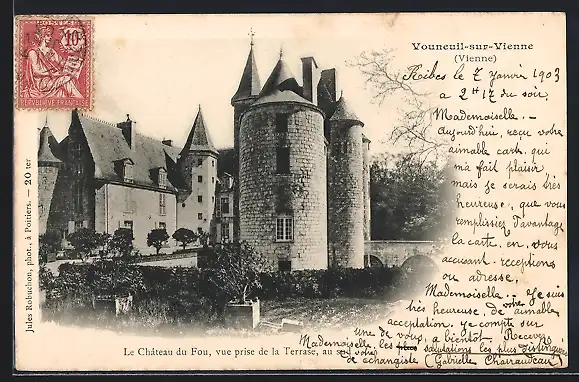 10
REPUBLIQUE FRANÇAISE
Vouneuil-sur-Vienne
(Vienne)
Ribes le 7 Janvir 1903
a 2H 17 du soir
Mademoiselle. -
Aujourd'hui, reçu votre
aimable carte. qui
ma fait plaisir
mais je serais très
heureuse, que vous
remplissiez davantage
la carte. en. vous
accusant - receptions
ou adresse.
Mademoiselle. Je suis
très heureuse, de votre aimable
acceptation. je compte sur
une de vous, a bientôt - Recevez
Mademoiselle. les salutations les plus distinguées
de échangiste (Gabrielle Chairaudeau)
Jules Robuchon, phot., à Poitiers. — 20 ter
Le Château du Fou, vue prise de la Terrasse, au